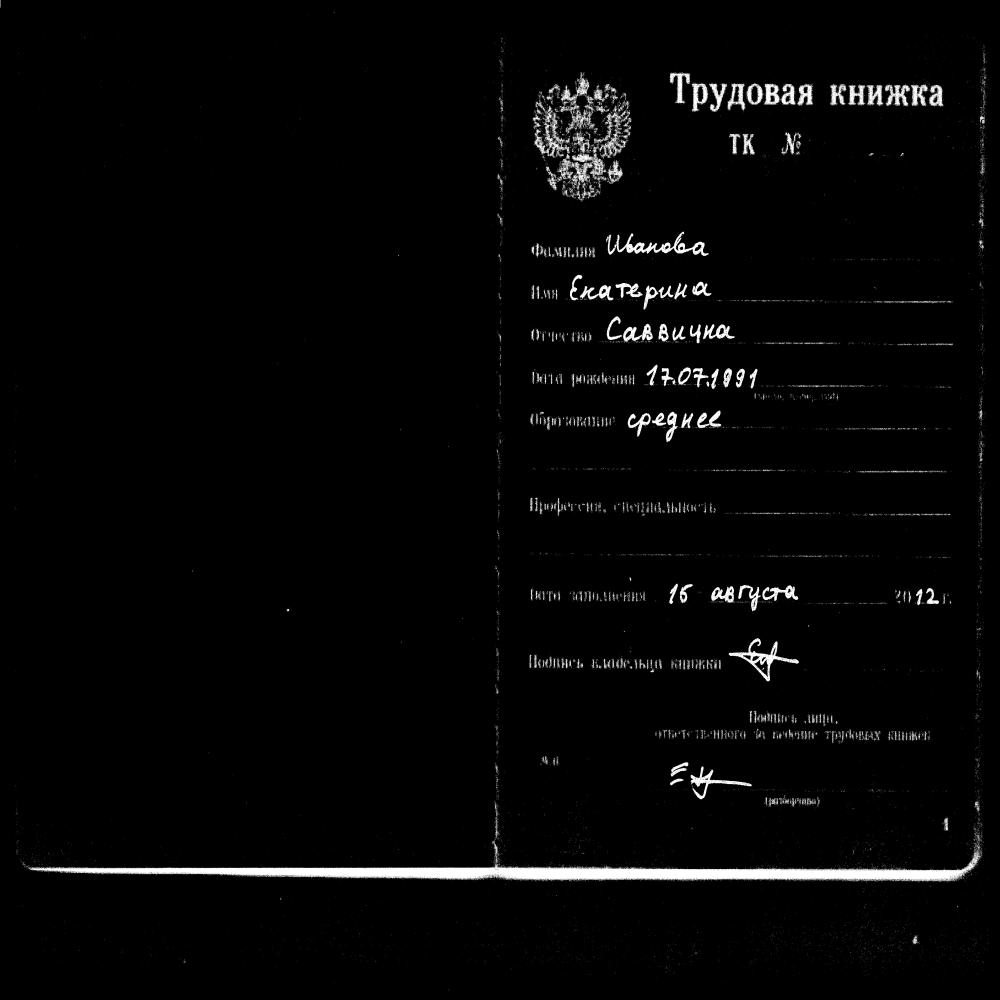 Трудовая книжка
ТК №
Фамилия Иванова
Имя Екатерина
Отчество Саввична
Дата рождения 17.07.1991
(число, месяц, год)
Образование среднее
Профессия, специальность
Дата заполнения 15 августа 2012 г.
Подпись владельца книжки
Подпись лица,
ответственного за ведение трудовых книжек
М.П.
(разборчиво)
1